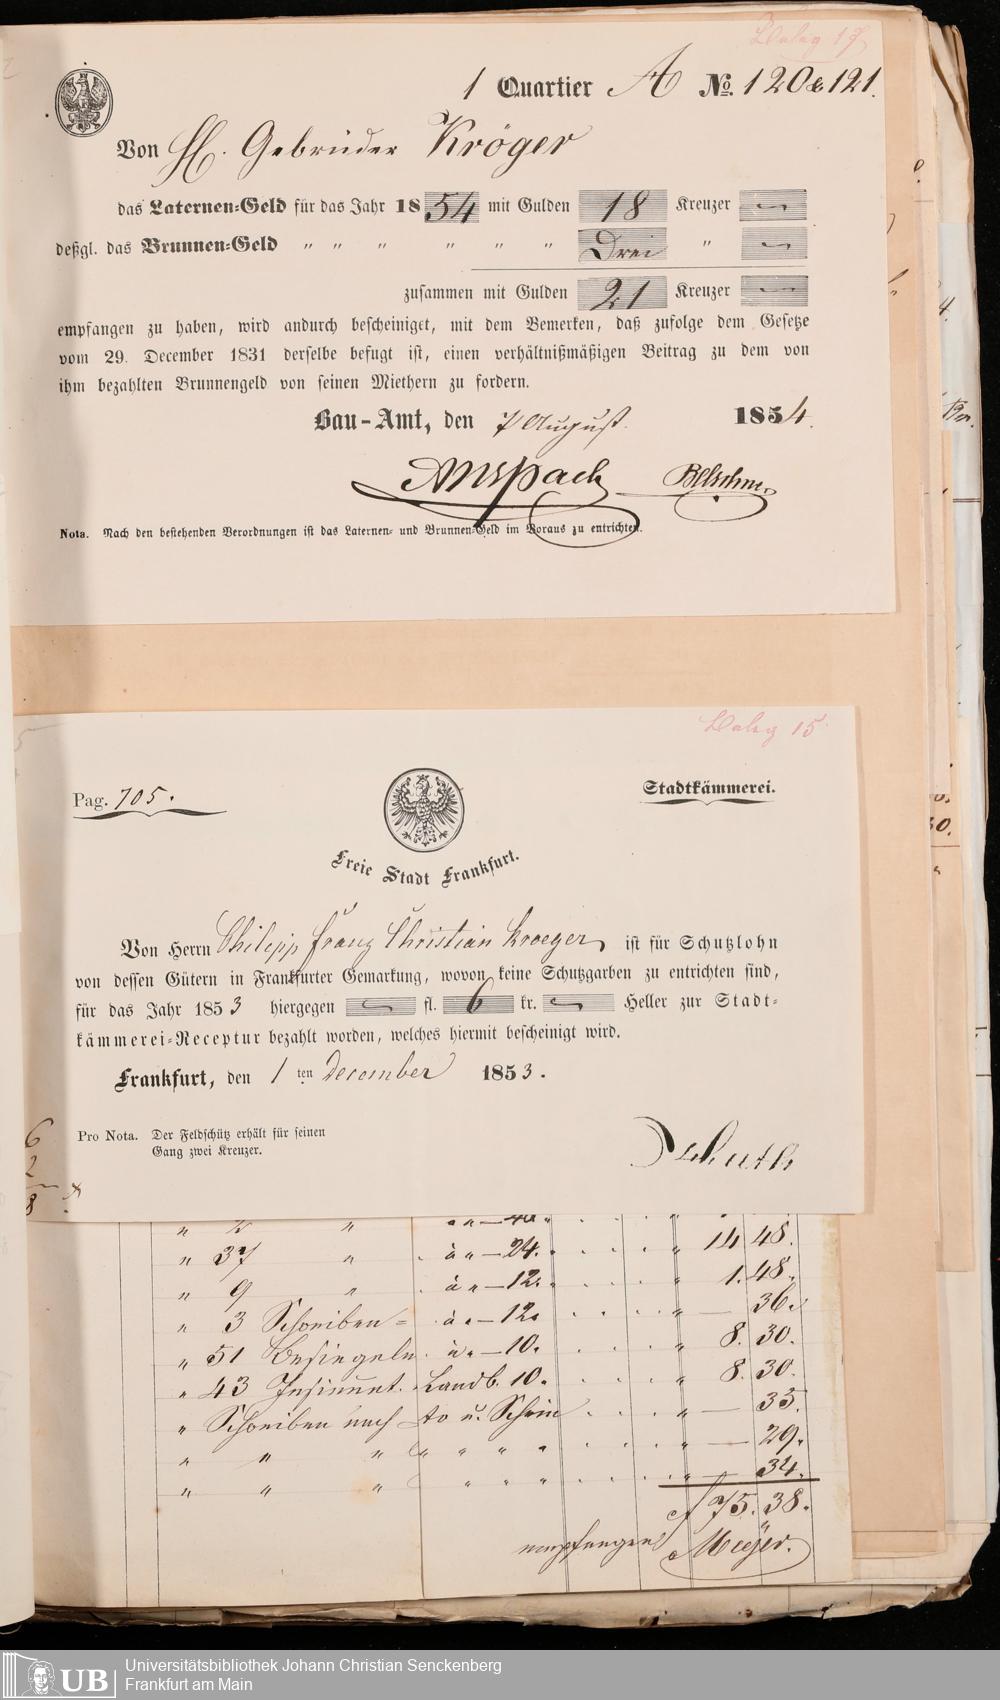 Beleg 17
1 Quartier A No. 120 & 121.
Von H. Gebrüder Kröger
das Laternen=Geld für das Jahr 1854 mit Gulden 18 Kreuzer —
deßgl. das Brunnen=Geld " " " " " " Drei " —
zusammen mit Gulden 21 Kreuzer —
empfangen zu haben, wird andurch bescheiniget, mit dem Bemerken, daß zufolge dem Gesetze
vom 29. December 1831 derselbe befugt ist, einen verhältnißmäßigen Beitrag zu dem von
ihm bezahlten Brunnengeld von seinen Miethern zu fordern.
Bau-Amt, den 7 August. 1854.
Anspach
Nota. Nach den bestehenden Verordnungen ist das Laternen- und Brunnen-Geld im Voraus zu entrichten.
Beleg 15
Pag. 705.
Stadtkämmerei.
Freie Stadt Frankfurt.
Von Herrn Philipp Franz Christian Kroeger, ist für Schutzlohn
von dessen Gütern in Frankfurter Gemarkung, wovon keine Schutzgarben zu entrichten sind,
für das Jahr 1853 hiergegen — fl. 6 kr. — Heller zur Stadt-
kämmerei=Receptur bezahlt worden, welches hiermit bescheinigt wird.
Frankfurt, den 1 ten December 1853.
Pro Nota. Der Feldschütz erhält für seinen
Gang zwei Kreuzer.
6
2
8
" 37 " à " — 24. " 14 48.
" 9 " à " — 12. " 1. 48.
" 3 Schreiben= à " — 12. " — 36.
" 51 Besiegeln à " — 10. " 8. 30.
" 43 Insinuat. Landb. 10. " 8. 30.
" Schreiben nach " — 35.
" " " " — 29.
" " " " — 34.
f 75. 38.
empfangen Meÿer.
UB Universitätsbibliothek Johann Christian Senckenberg
Frankfurt am Main